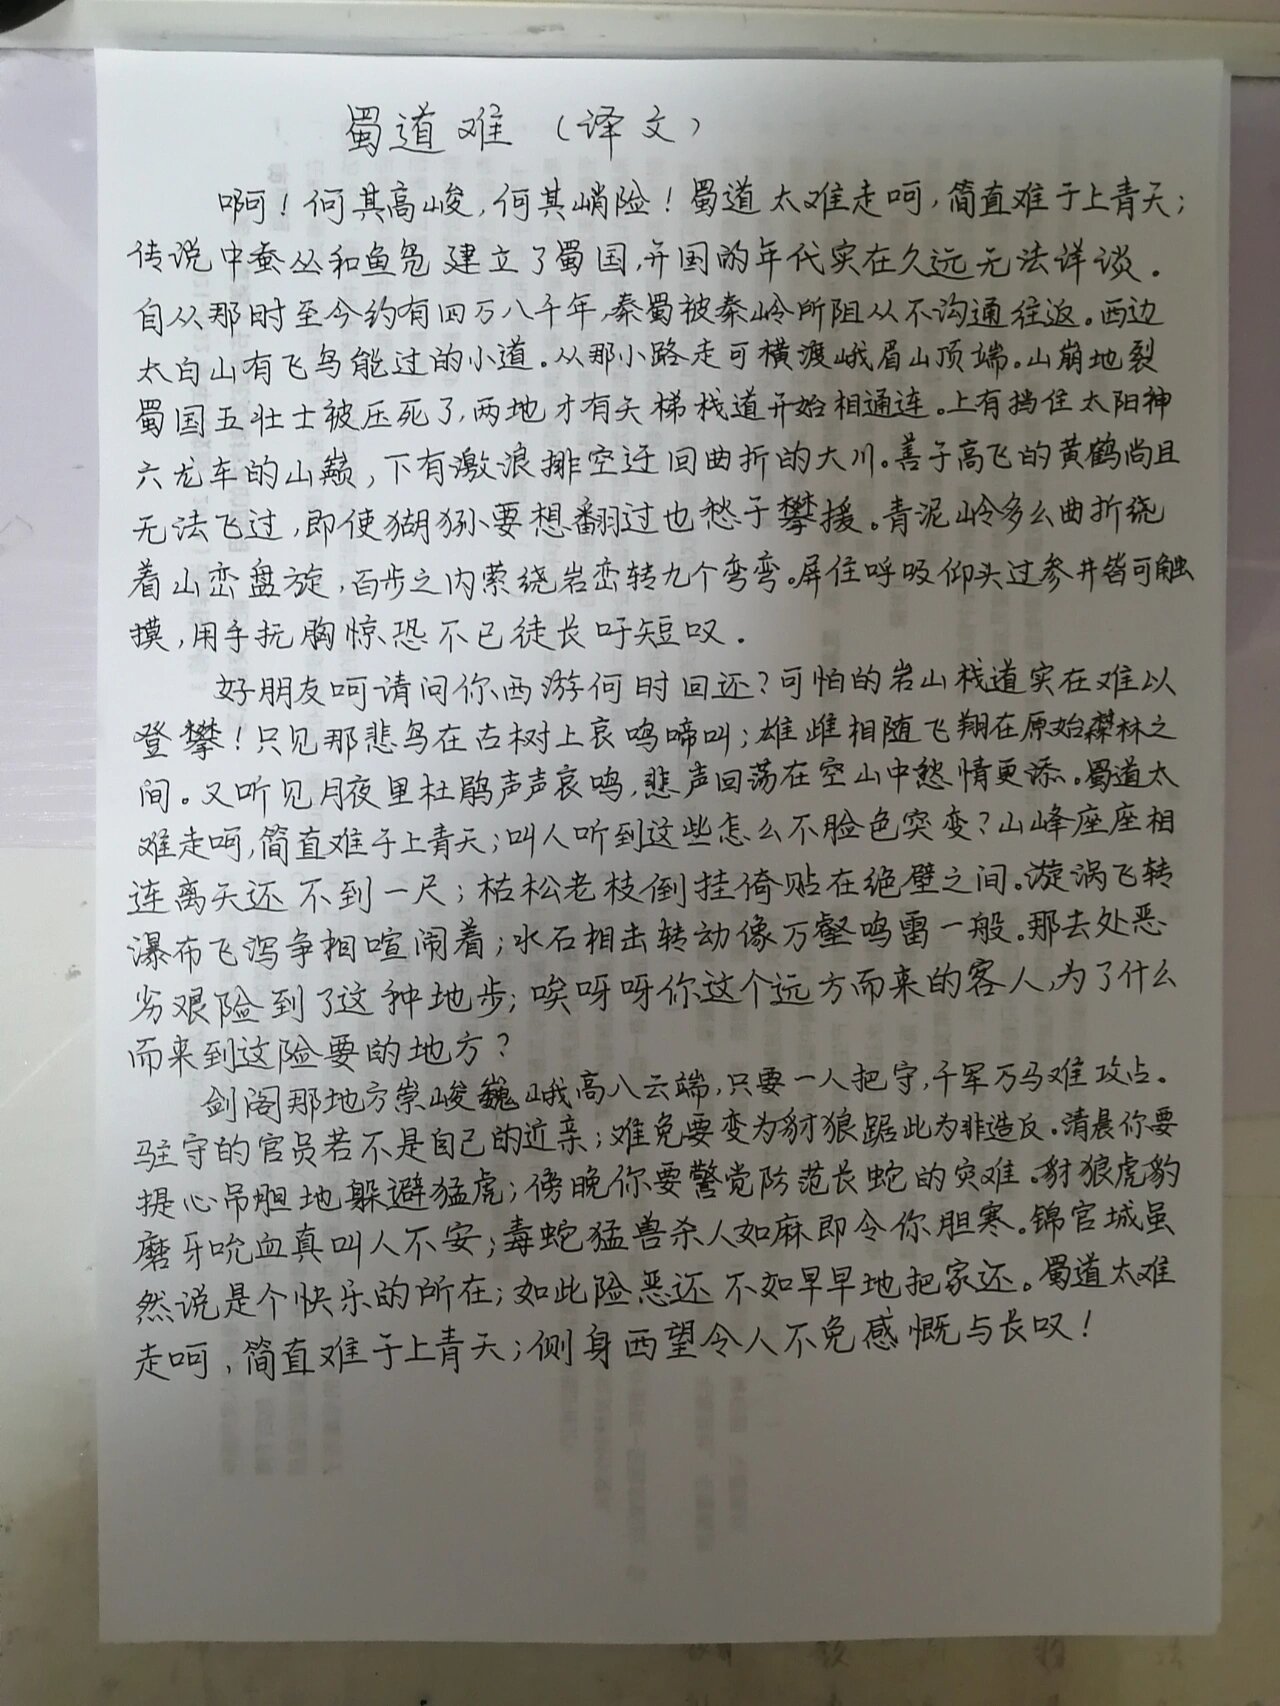 蜀道难（译文）
啊！何其高峻，何其峭险！蜀道太难走呵，简直难于上青天；
传说中蚕丛和鱼凫建立了蜀国，开国的年代实在久远无法详谈。
自从那时至今约有四万八千年，秦蜀被秦岭所阻从不沟通往返。西边
太白山有飞鸟能过的小道。从那小路走可横渡峨眉山顶端。山崩地裂
蜀国五壮士被压死了，两地才有天梯栈道开始相通连。上有挡住太阳神
六龙车的山巅，下有激浪排空迂回曲折的大川。善于高飞的黄鹤尚且
无法飞过，即使猢狲要想翻过也愁于攀援。青泥岭多么曲折绕
着山峦盘旋，百步之内萦绕岩峦转九个弯弯。屏住呼吸仰头过参井皆可触
摸，用手抚胸惊恐不已徒长吁短叹。
好朋友呵请问你西游何时回还？可怕的岩山栈道实在难以
登攀！只见那悲鸟在古树上哀鸣啼叫；雄雌相随飞翔在原始森林之
间。又听见月夜里杜鹃声声哀鸣，悲声回荡在空山中愁情更添。蜀道太
难走呵，简直难于上青天；叫人听到这些怎么不脸色突变？山峰座座相
连离天还不到一尺；枯松老枝倒挂倚贴在绝壁之间。漩涡飞转
瀑布飞泻争相喧闹着；水石相击转动像万壑鸣雷一般。那去处恶
劣艰险到了这种地步；唉呀呀你这个远方而来的客人，为了什么
而来到这险要的地方？
剑阁那地方崇峻巍峨高入云端，只要一人把守，千军万马难攻占。
驻守的官员若不是自己的近亲；难免要变为豺狼踞此为非造反。清晨你要
提心吊胆地躲避猛虎；傍晚你要警觉防范长蛇的灾难。豺狼虎豹
磨牙吮血真叫人不安；毒蛇猛兽杀人如麻即令你胆寒。锦官城虽
然说是个快乐的所在；如此险恶还不如早早地把家还。蜀道太难
走呵，简直难于上青天；侧身西望令人不免感慨与长叹！